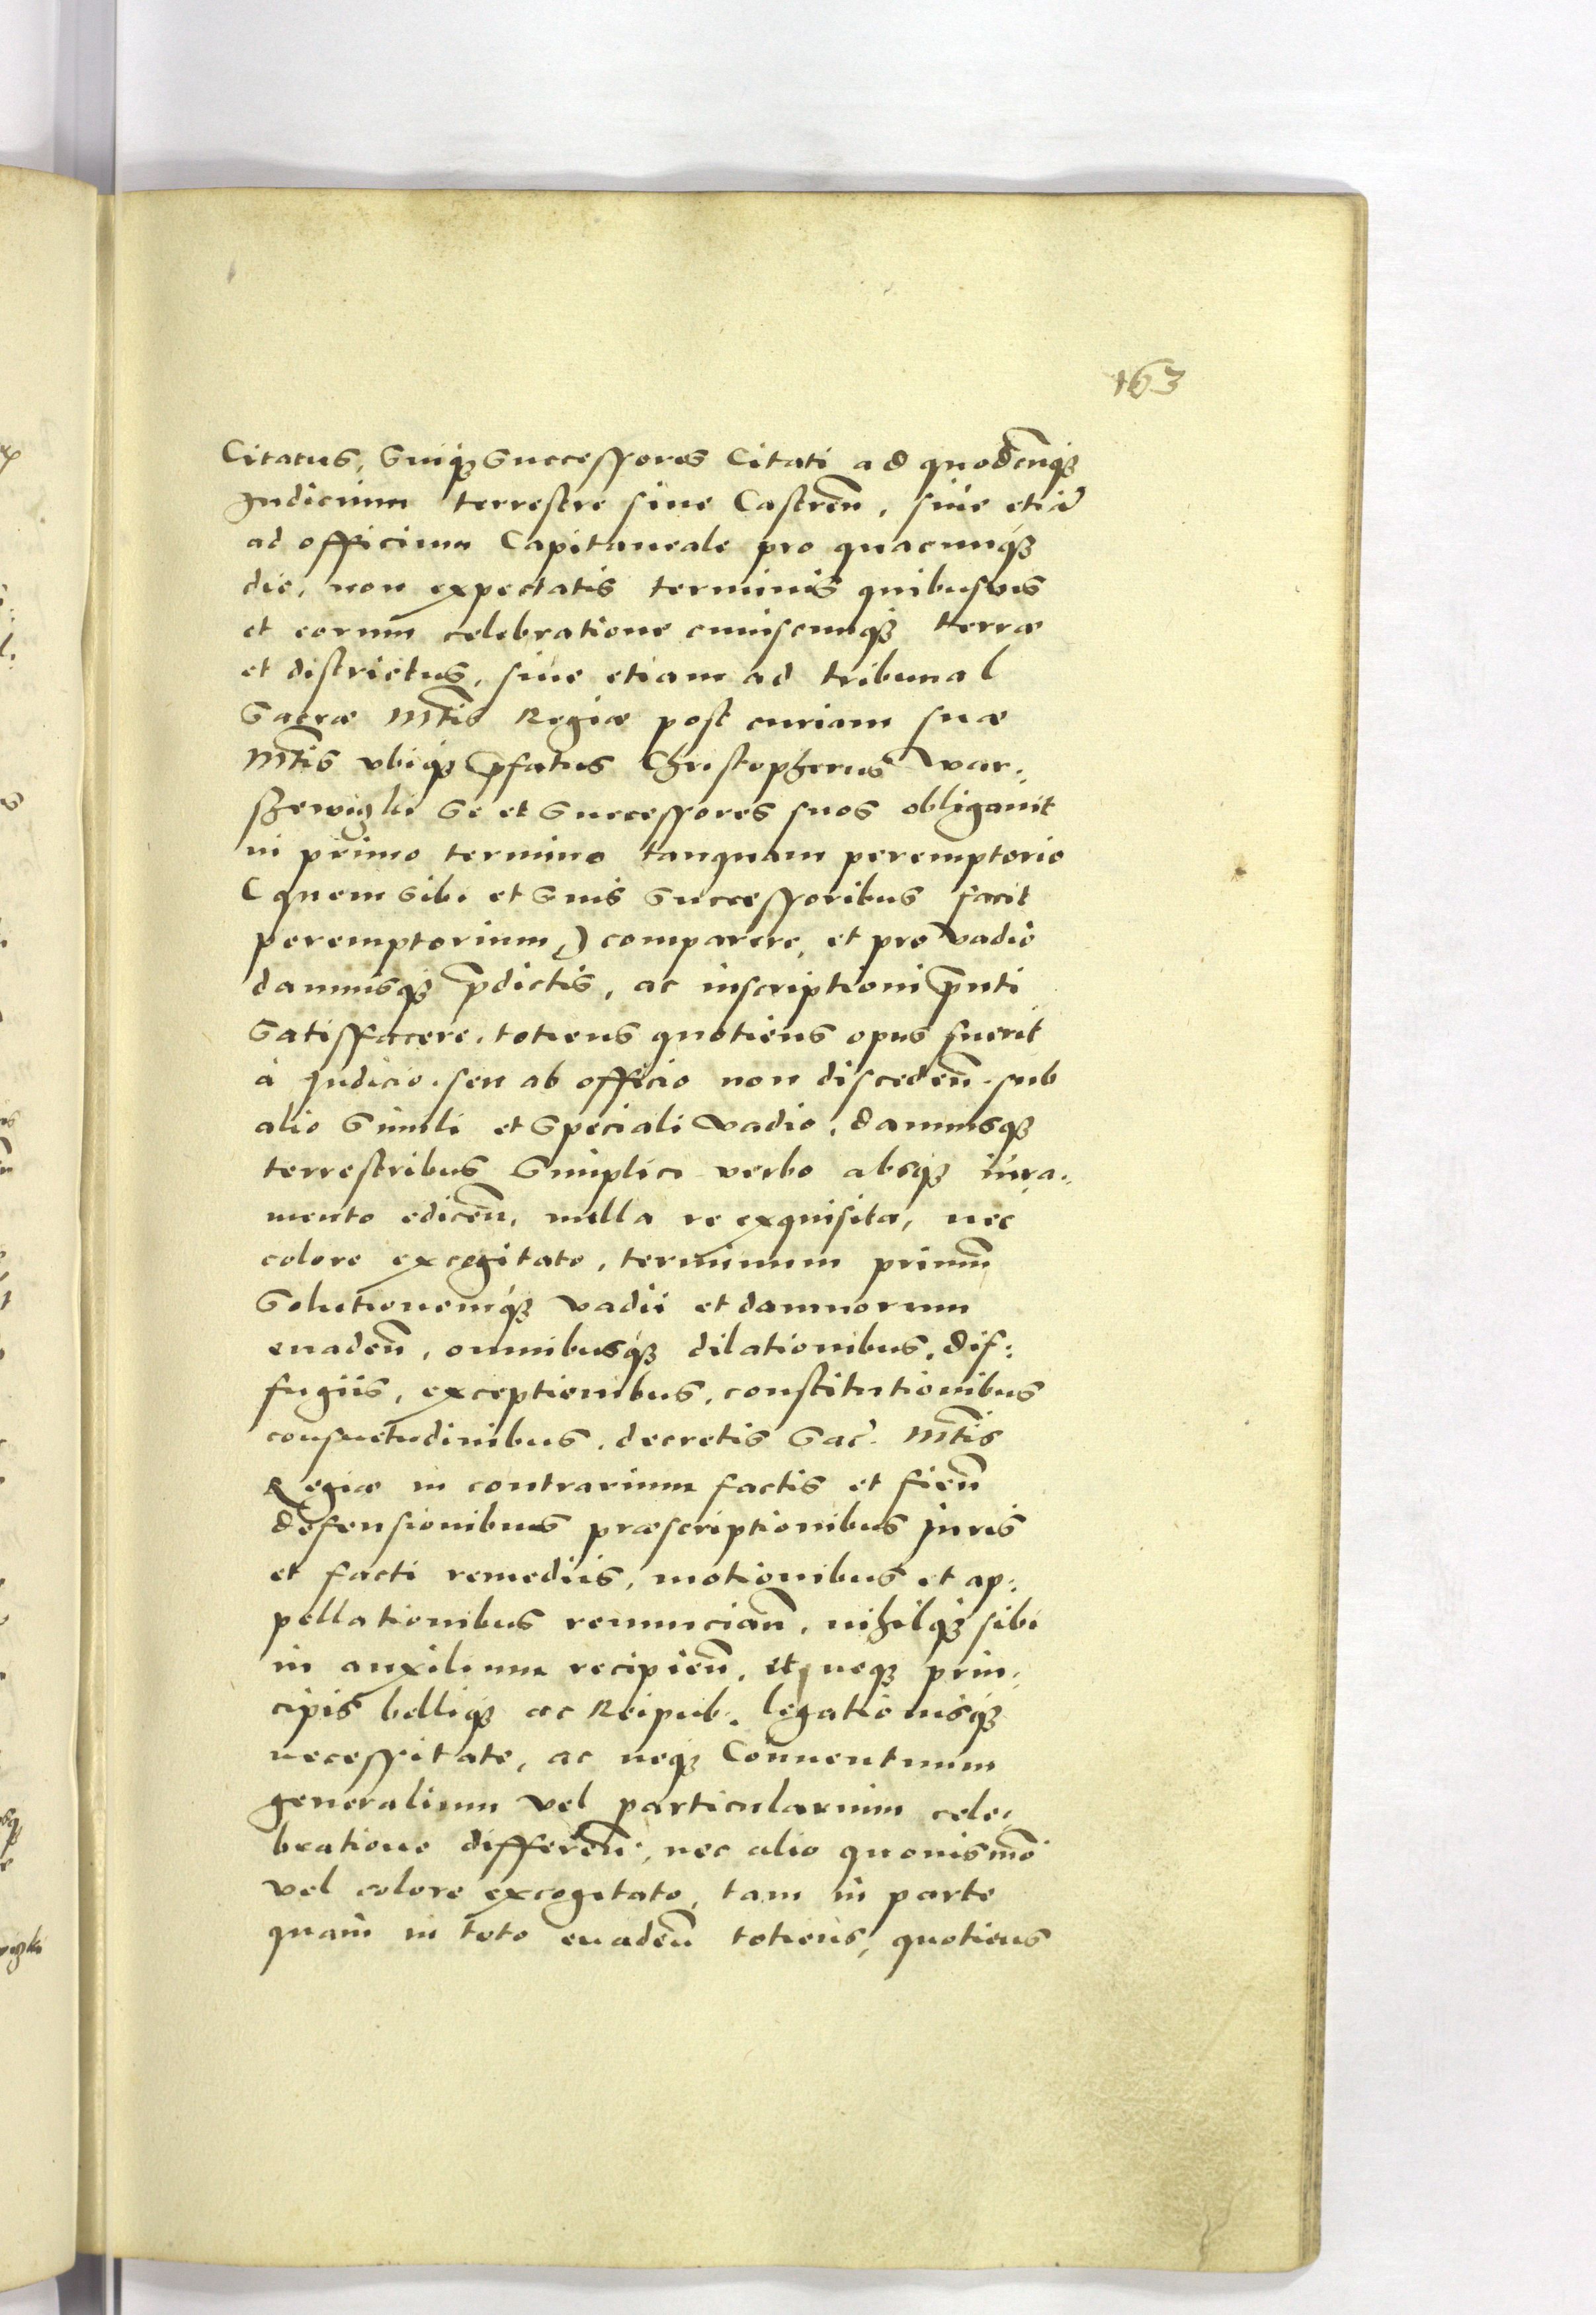 163
Citatus, Suiq₃ Successores Citati ad quodcunq₃
Judicium terrestre siue Castren̄, siue etiā
ad officium Capitaneale pro quacunq₃
die, non expectatis terminis quibusuis
et eorum celebratione cuiuscunq₃ terræ
et districtus, siue etiam ad tribunal
Sacræ Mtis Regiæ post curiam suæ
Mtis vbiq₃ p̄fatus Christopherus War:
szewizki Se et Successores suos obligauit
in primo termino tanquam peremptorio
(quem sibi et Suis Successoribus facit
peremptorium,) comparere, et pro vadio
damnisq₃ p̄dictis, ac inscriptioni p̄nti
Satisfacere, totiens quotiens opus fuerit
à Judicio, seu ab officio non disceden̄. sub
alio Simili et Speciali vadio, damnisq₃
terrestribus Simplici verbo absq₃ iura:
mento edicen̄, nulla re exquisita, nec
colore excogitato, terminum primum
Solutionemq₃ vadii et damnorum
euaden̄, omnibusq₃ dilationibus, dif:
fugiis, exceptionibus, constitutionibus
consuetudinibus, decretis Sac. Mtis
Regiæ in contrarium factis et fien̄
defensionibus præscriptionibus Juris
et facti remediis, motionibus et ap:
pellationibus renuncian̄, nihilq₃ sibi
in auxilium recipien̄, et neq₃ prin:
cipis belliq₃ ac Reipub. legationisq₃
necessitate, ac neq₃ Conuentuum
generalium vel particularium cele:
bratione differen̄, nec alio quouismōi
vel colore excogitato, tam in parte
quam in toto euaden̄ totiens, quotiens